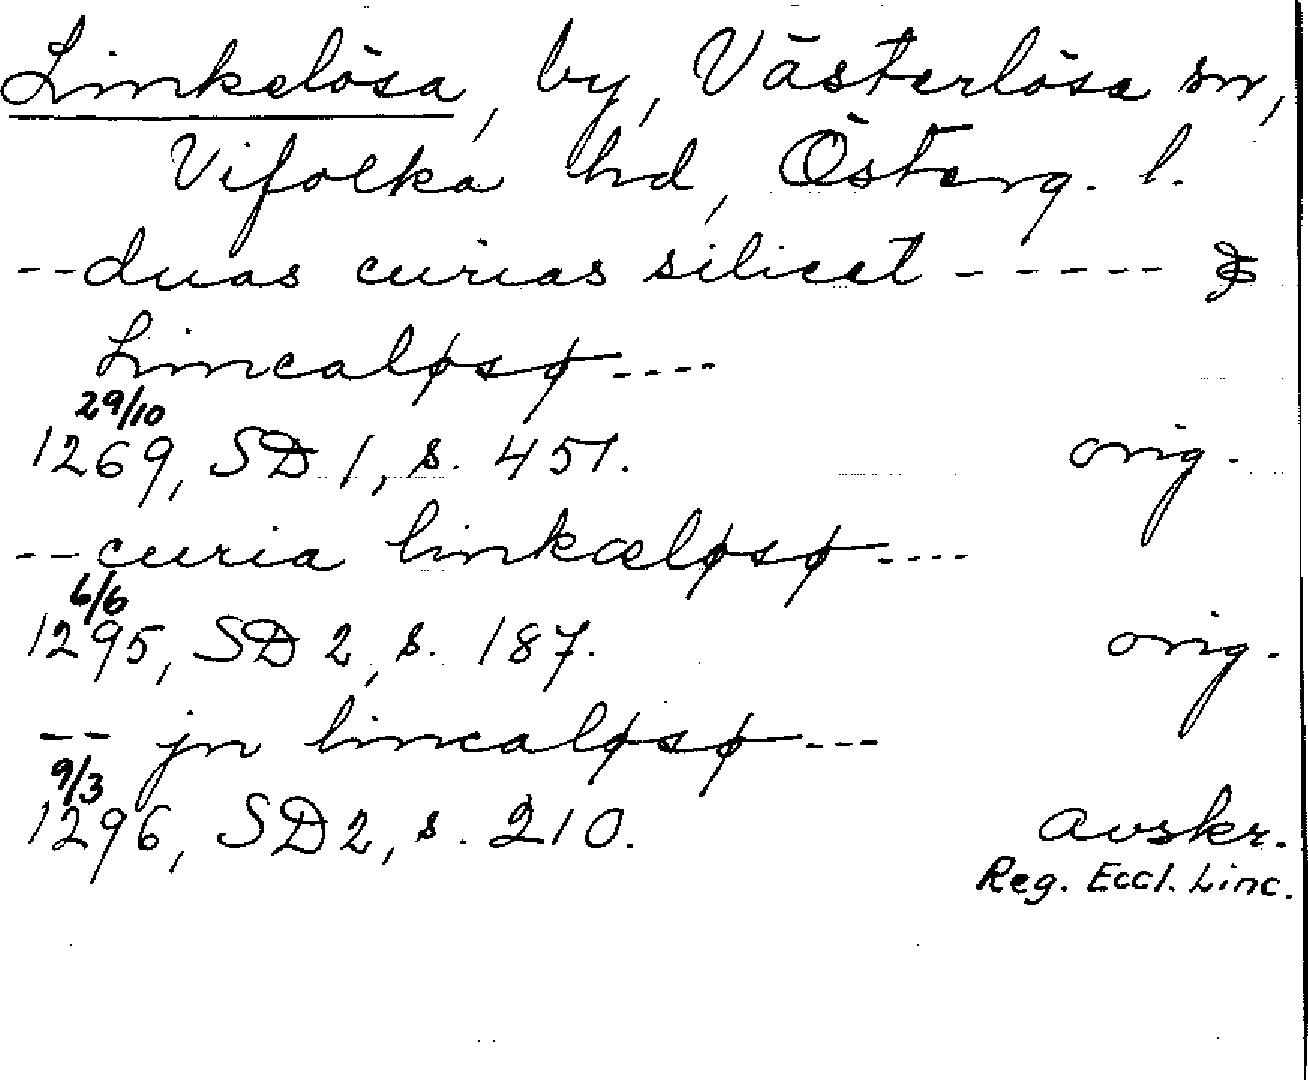 Linkelösa, by, Västerlösa sn,
Vifolka hd, Österg. l.
--duas curias silicet ------ &
Lincaløsø----
29/10
1269, SD 1, s. 451. orig.
--curia linkæløsø----
6/6
1295, SD 2, s. 187. orig.
-- jn lincaløsø---
9/3
1296, SD 2, s. 210. avskr.
Reg. Eccl. Linc.